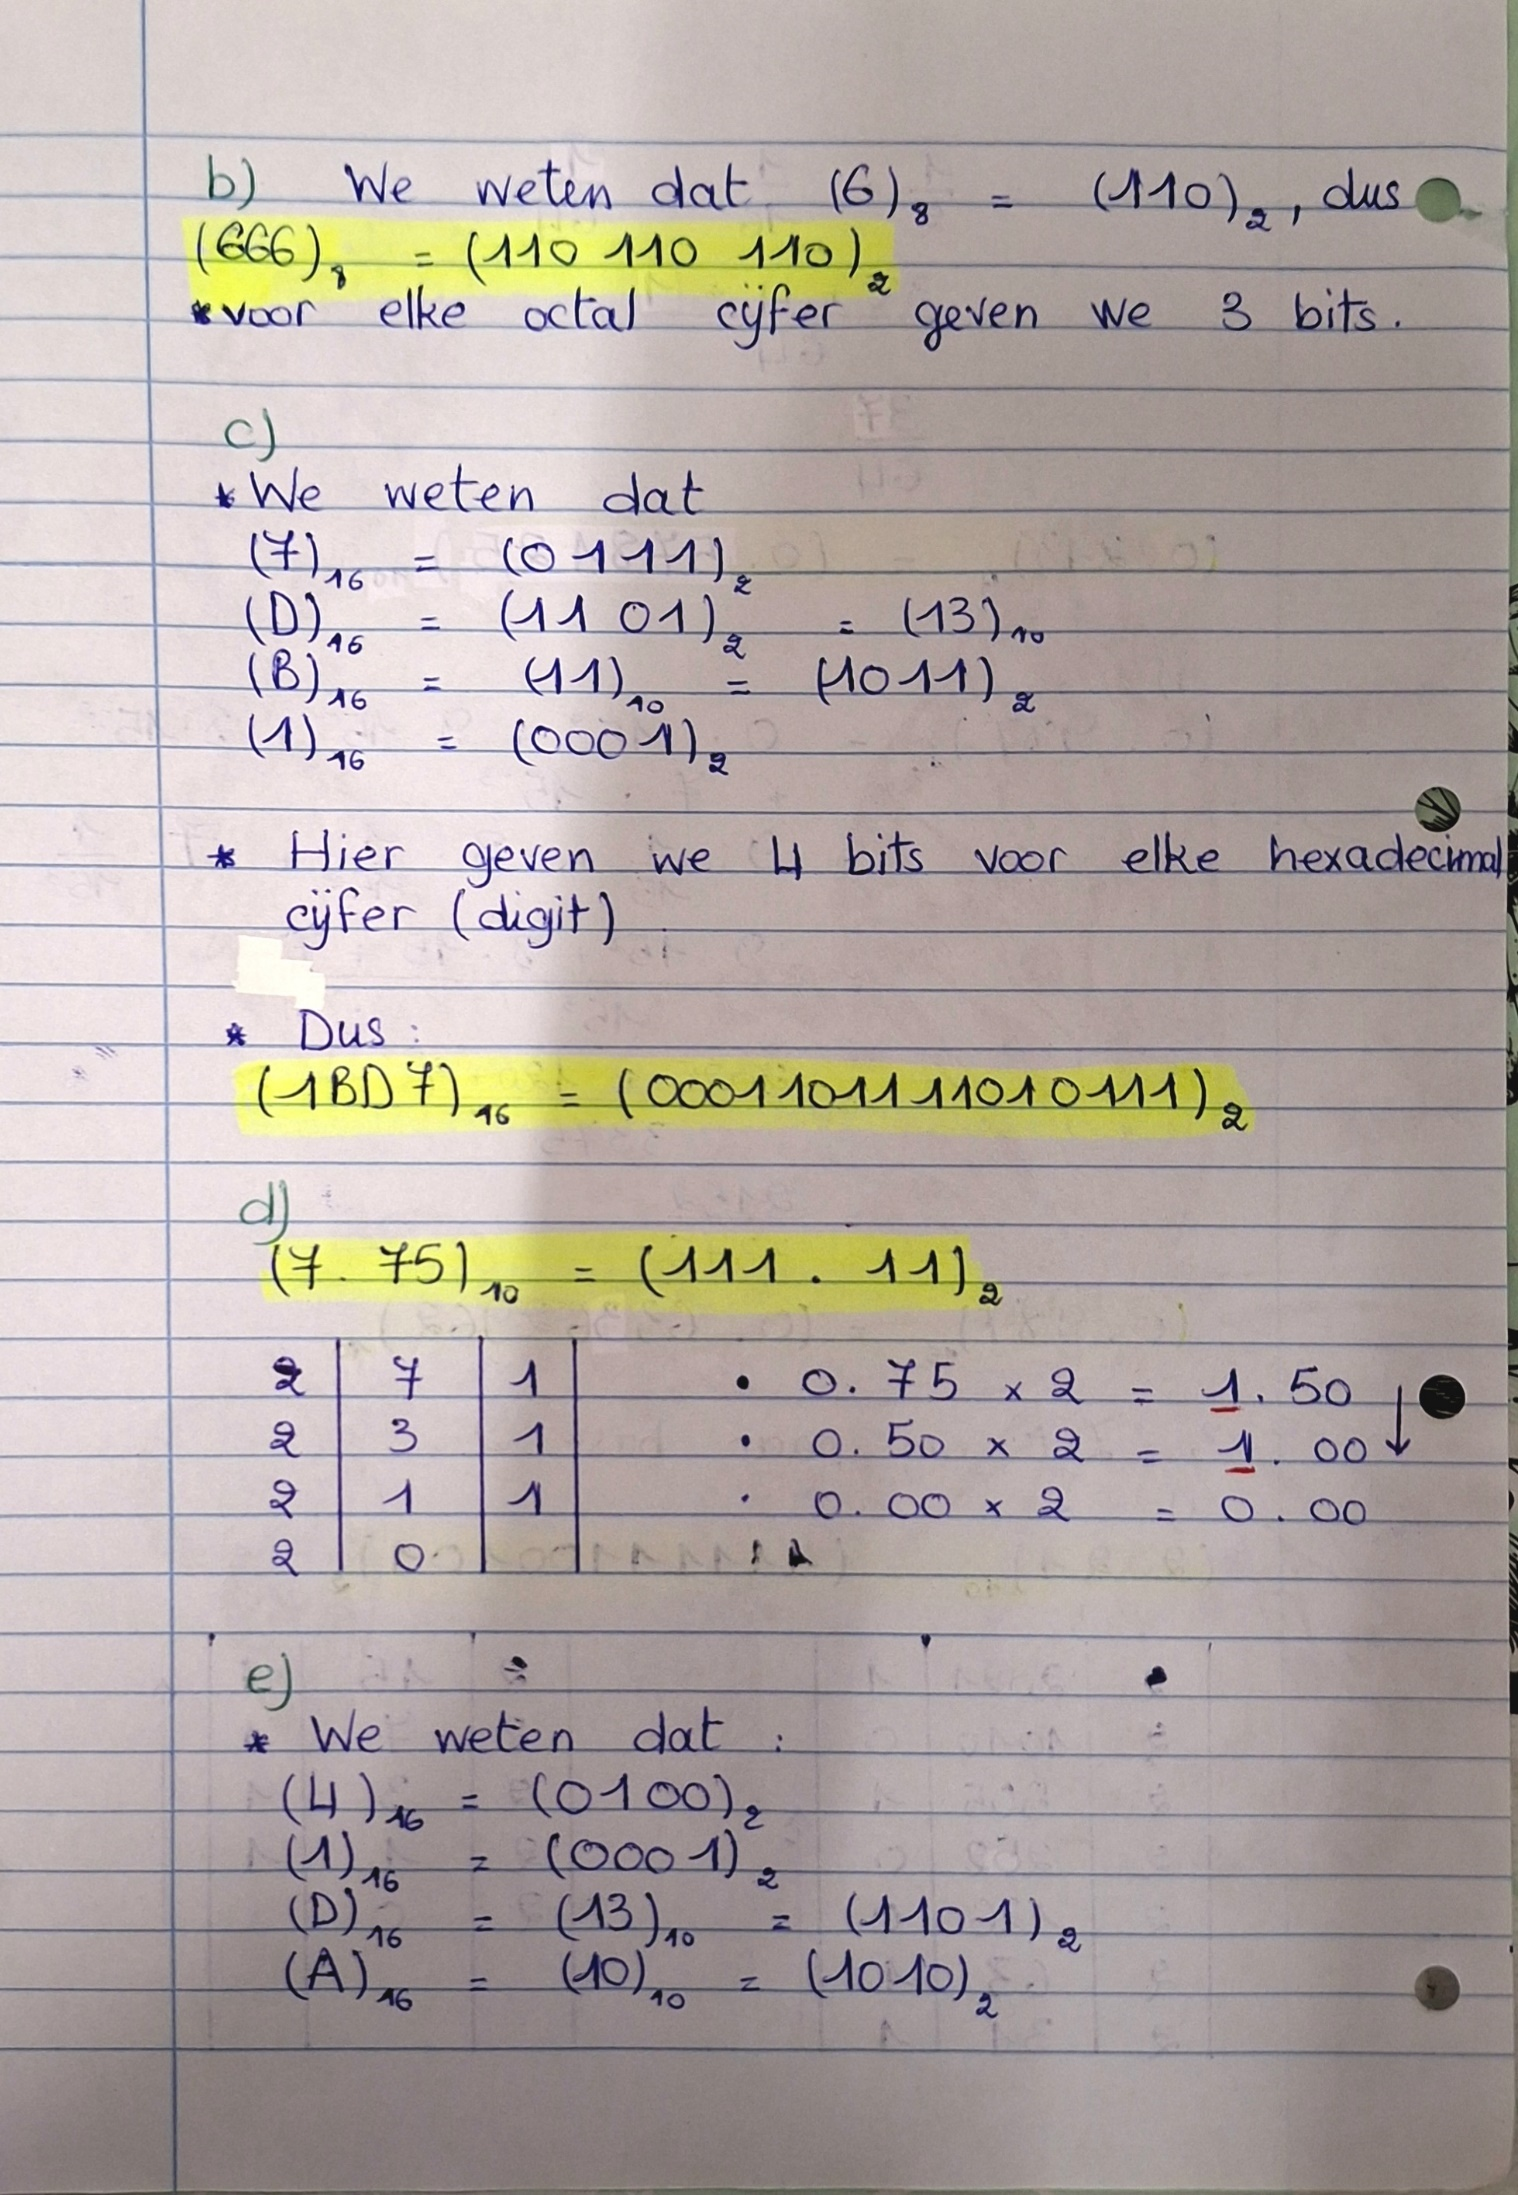 b) We weten dat (6)₈ = (110)₂, dus
(666)₈ = (110 110 110)₂
* voor elke octal cijfer geven we 3 bits.
c)
* We weten dat
(7)₁₆ = (0111)₂
(D)₁₆ = (1101)₂ = (13)₁₀
(B)₁₆ = (11)₁₀ = (1011)₂
(1)₁₆ = (0001)₂
* Hier geven we 4 bits voor elke hexadecimal
cijfer (digit)
* Dus:
(1BD7)₁₆ = (0001101111010111)₂
d)
(7.75)₁₀ = (111.11)₂
2 | 7 | 1 | • 0.75 x 2 = 1.50 ↓
2 | 3 | 1 | • 0.50 x 2 = 1.00
2 | 1 | 1 | • 0.00 x 2 = 0.00
2 | 0 | |
e)
* We weten dat :
(4)₁₆ = (0100)₂
(1)₁₆ = (0001)₂
(D)₁₆ = (13)₁₀ = (1101)₂
(A)₁₆ = (10)₁₀ = (1010)₂